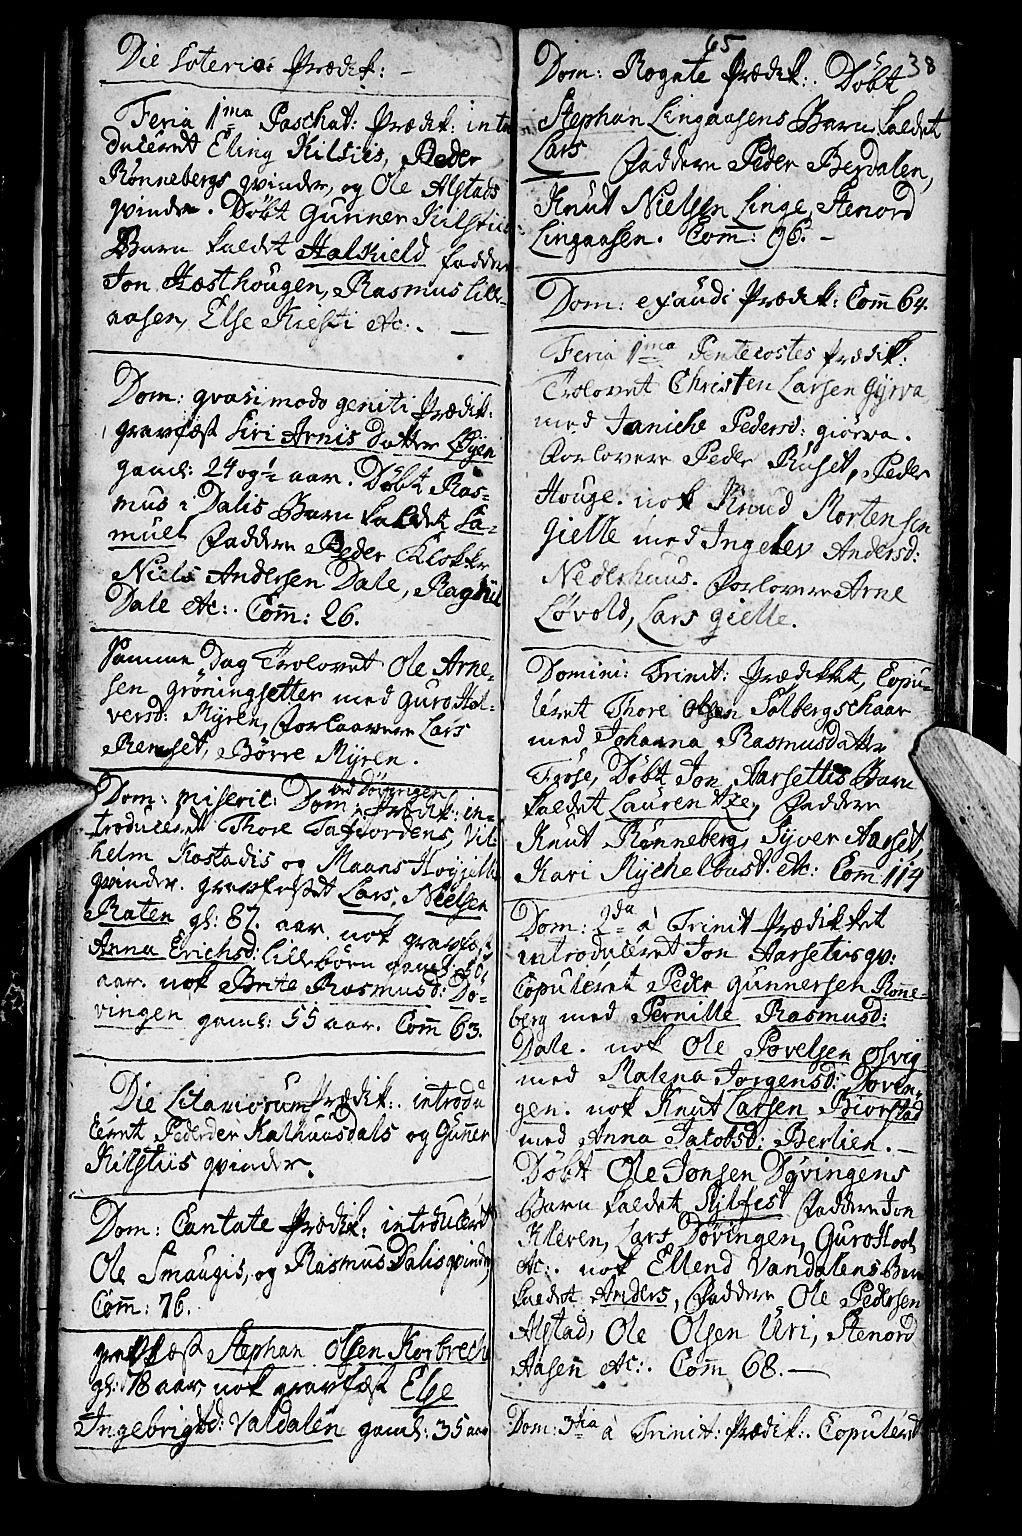 Die Soteris Prædik: –
Feria 1ma Paschat: Prædik: intro
duceret Eling Kilstiis, Peder
Rønnebergs qvinder, og Ole Alstads
qvinde. Döbt Gunner Kilstiis
Barn kaldet Halkield faddere
Jon Høsthougen, Rasmus Lille-
aasen, Else Kilsti etc:. –
Dom: qvasimodo geniti Prædik:
gravfæst Siri Arnis datter Øyen
gaml: 24 og ½ aar. Döbt Ras-
mus i Dalis Barn kaldet Sa-
muel Faddere Peder Klokker
Niels Andersen Dale, Ragnil
Dale etc:. Com̄: 26.
Samme Dag Trolovet Ole Arne-
sen Gröningsetter med Guro Hal-
versd: Myren, Forlovere Lars
Remset, Börre Myren.
Dom: miseric: Dom: Prædik: in-
ved Döfvigen
troduceret Thore Tafjordens, Vil-
helm Kostadis og Maans Høyjelle
qvinder. gravfæstet Lars Nielsen
Raten gl: 87. aar nok gravfæst
Anna Erichsd: Lillebøen gaml: 50
aar. nok Brite Rasmusd: Dö-
vingen gaml: 55 aar. Com̄ 63.
Die Litaniorum Prædik:. introdu
ceret Peder Kalhuusdals og Gun̄er
Kilstiis qvinder.
Dom: Cantate Prædik: introduceret
Ole Smaugis, og Rasmus Dalis qvinder
Com̄: 76.
gravfæst Stephan Olsen Korbrech
gl: 78 aar, nok gravfæst Else
Ingebrigtsd: Valdalen gaml: 35 aar
65
38
Dom: Rogate Prædik:. Döbt
Stephan Lingaasens Barn kaldet
Lars Faddere Peder Berdalen,
Knut Nielsen Linge, Stenord
Lingaasen. Com̄: 96. –
Dom: exaudi Prædik: Com̄ 64.
Feria 1ma Pentecostes Prædik:
Trolovet Christen Larsen Gyrva
med Janiche Pedersd: giörva.
Forlovere Peder Ruset, Peder
Houge. nok Knud Mortensen
Gielle med Ingeler Andersd:
Nederhuus. Forlovere Arne
Løvold, Lars Gielle.
Domini: Trinit: Prædikket, Copu-
leret Thore Olsen Solbergschaar
med Johanna Rasmusdatter
Frøse, Döbt Jon Aarsettis Barn
kaldet Laurentze, Faddere
Knut Rønneberg, Syver Aarset,
Kari Mychelbust. etc: Com̄ 114
Dom: 2da à Trinit Prædikket
introduceret Jon Aarsetis qv:
Copuleret Peder Gunnersen Røne-
berg med Pernille Rasmusd:
Dale. nok Ole Povelsen Osvig
med Malena Jorgensd: Döven-
gen. nok Knut Larsen Biorstad
med Anna Jacobsd: Berlien. –
Döbt Ole Jonsen Dövingens
Barn kaldet Sylfest Faddere Jon
Kleven, Lars Dövingen, Guro Hool
etc:. nok Ellend Vandalens Barn
kaldet Anders, Faddere Ole Pedersen
Alstad, Ole Olsen Uri, Stenord
Aasen̄ etc:. Com̄ 68. –
Dom: 3tia à Trinit: Prædik:. Copuleret